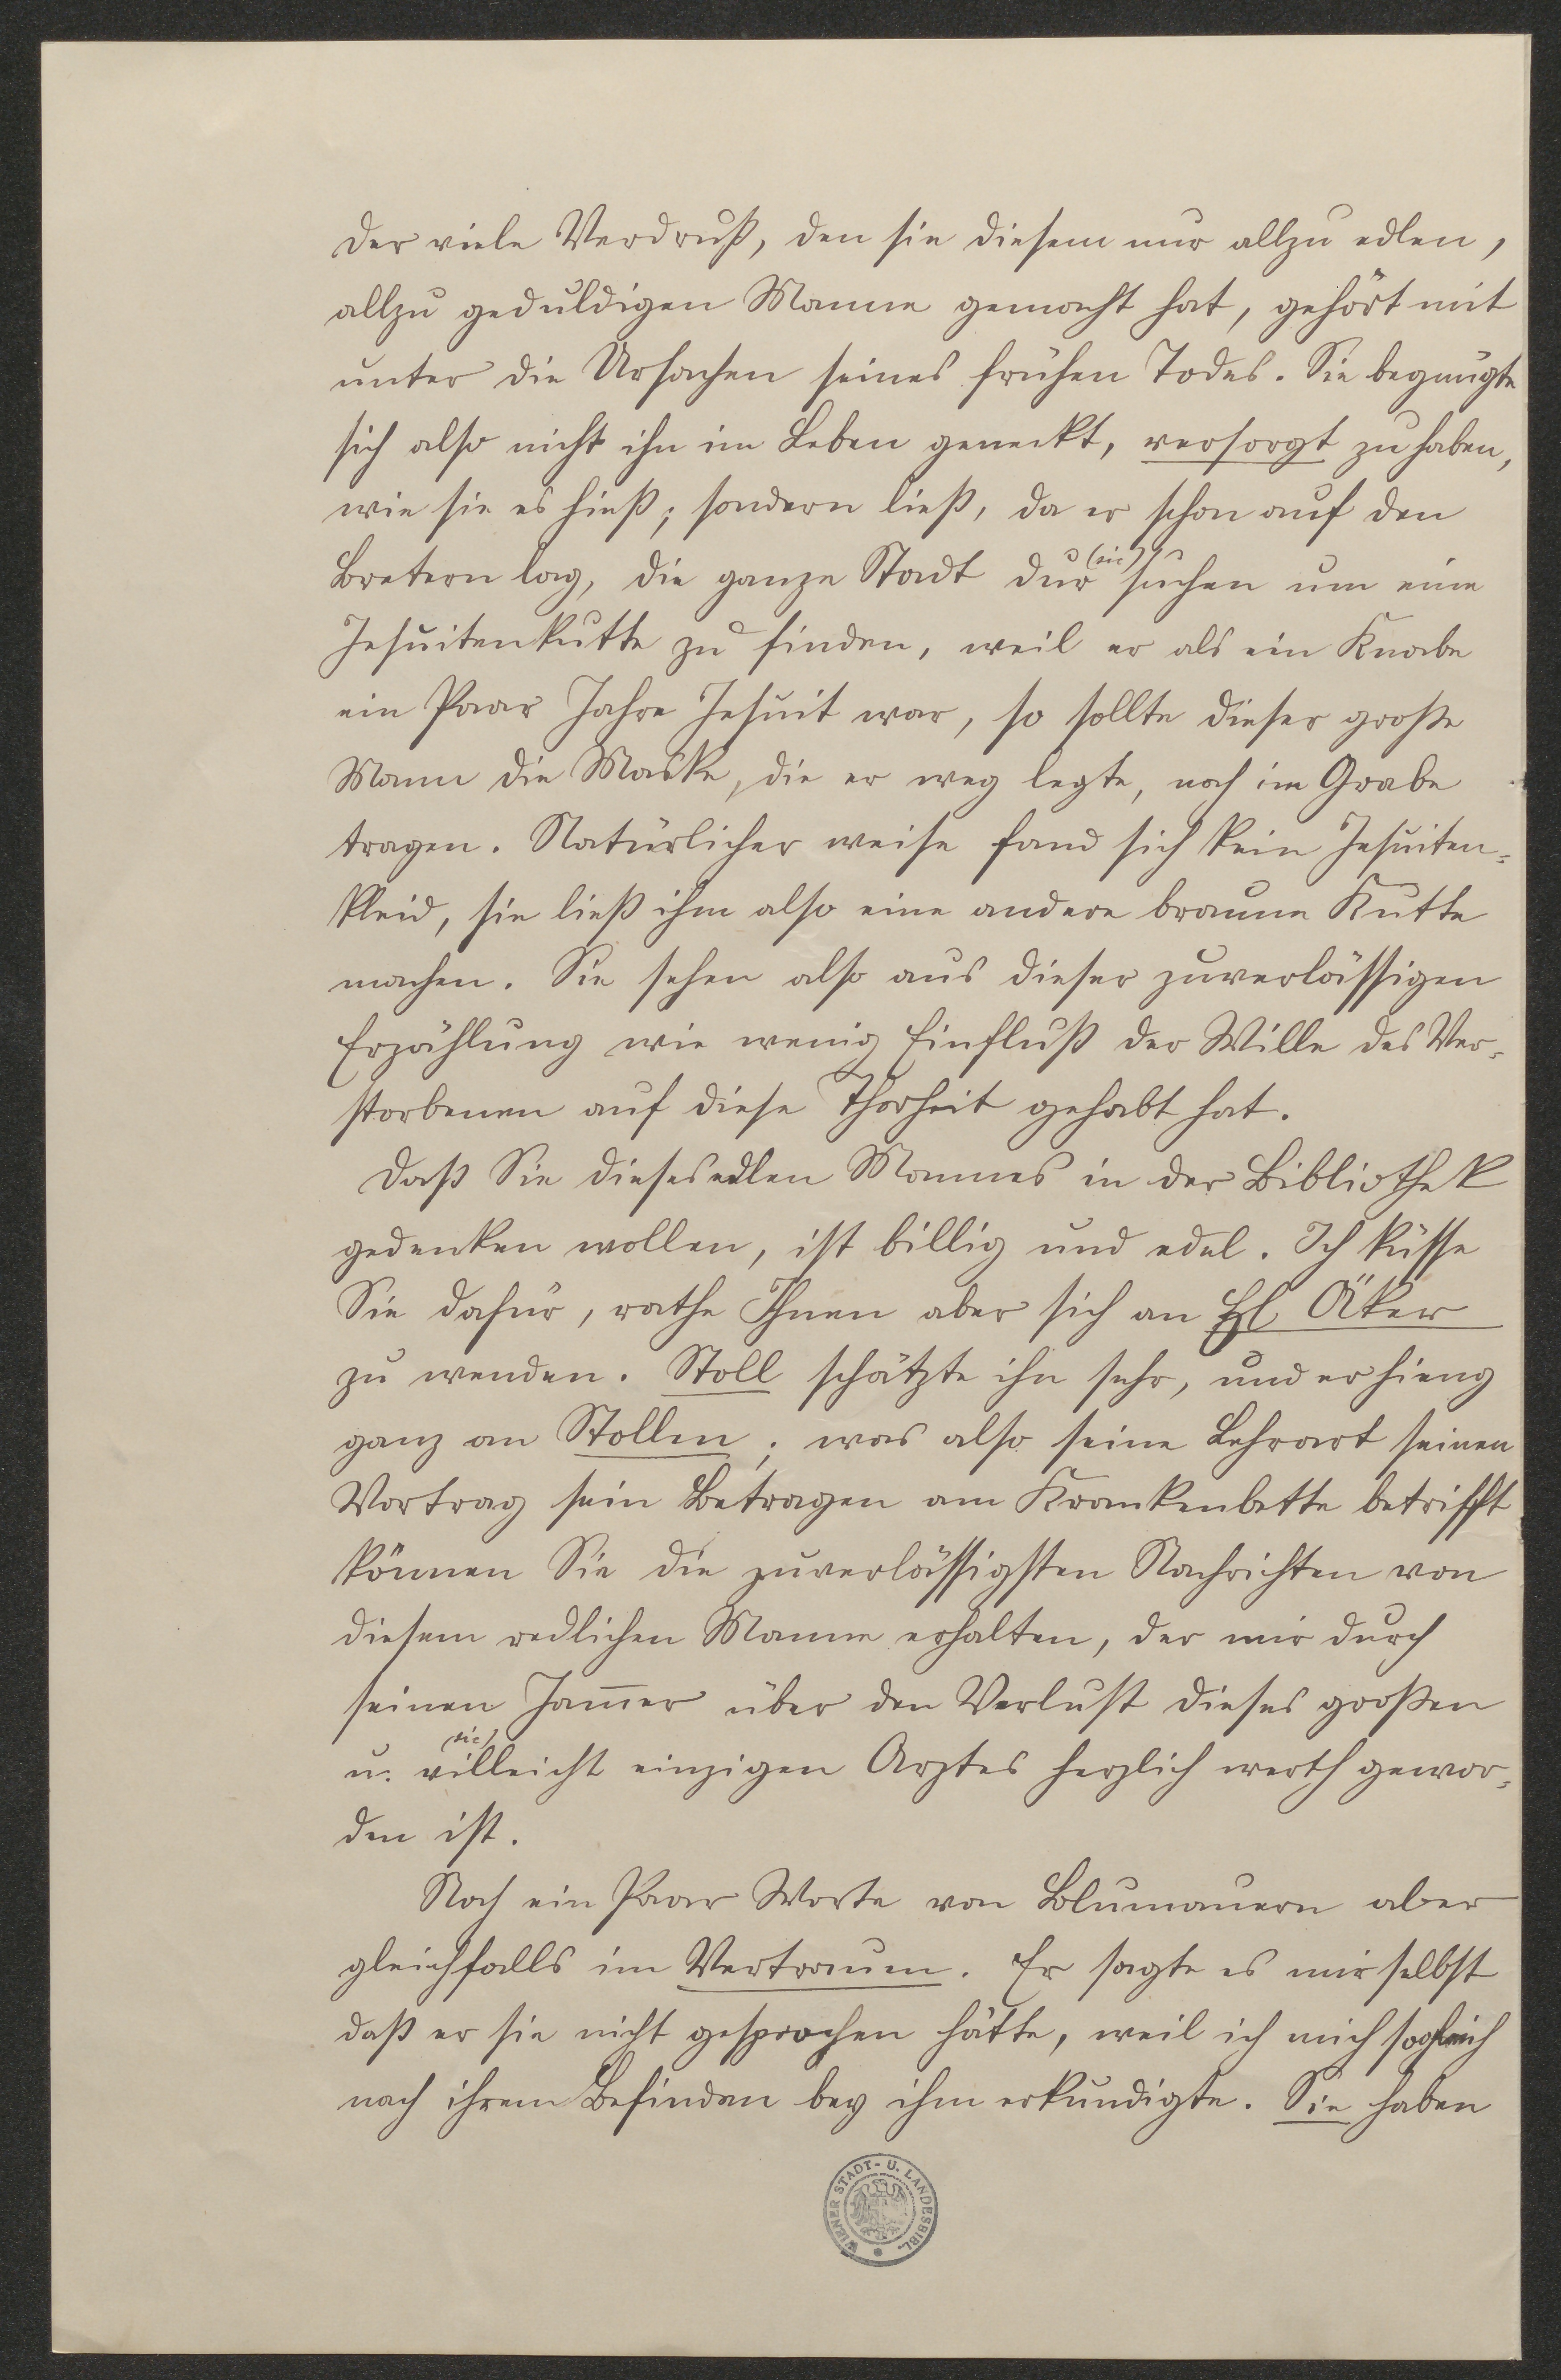 der viele Verdruß, den sie diesem nur allzu edlen,
allzu geduldigen Manne gemacht hat, gehört mit
unter die Ursachen seines frühen Todes. Sie begnügte
sich also nicht ihn im Leben geneckt, versorgt zu haben,
wie sie es hieß; sondern ließ, da er schon auf den
Bretern lag, die ganze Stadt dur (sic) suchen um eine
Jesuitenkutte zu finden, weil er als ein Knabe
ein Paar Jahre Jesuit war, so sollte dieser große
Mann die Maske, die er weg legte, noch im Grabe
tragen. Natürlicher weise fand sich kein Jesuiten-
kleid, sie ließ ihm also eine andere braune Kutte
machen. Sie sehen also aus dieser zuverlässigen
Erzählung wie wenig Einfluß der Wille des Ver-
storbenen auf diese Thorheit gehabt hat.
Daß Sie dieses edlen Mannes in der Bibliothek
gedenken wollen, ist billig und edel. Ich küsse
Sie dafür, rathe Ihnen aber sich an H. Äker
zu wenden. Stoll schätzte ihn sehr, und er hieng
ganz an Stollen; was also seine Lehrart seinen
Vortrag sein Betragen am Krankenbette betrifft
können Sie die zuverlässigsten Nachrichten von
diesem redlichen Manne erhalten, der mir durch
seinen Jam̄er über den Verlust dieses großen
u. villeicht (sic) einzigen Arztes herzlich werth gewor-
den ist.
Noch ein Paar Worte von Blumauern aber
gleichfalls im Vertrauen. Er sagte es mir selbst
daß er sie nicht gesprochen hätte, weil ich mich sogleich
nach ihrem Befinden bey ihm erkundigte. Sie haben
WIENER STADT- U. LANDESBIBL.